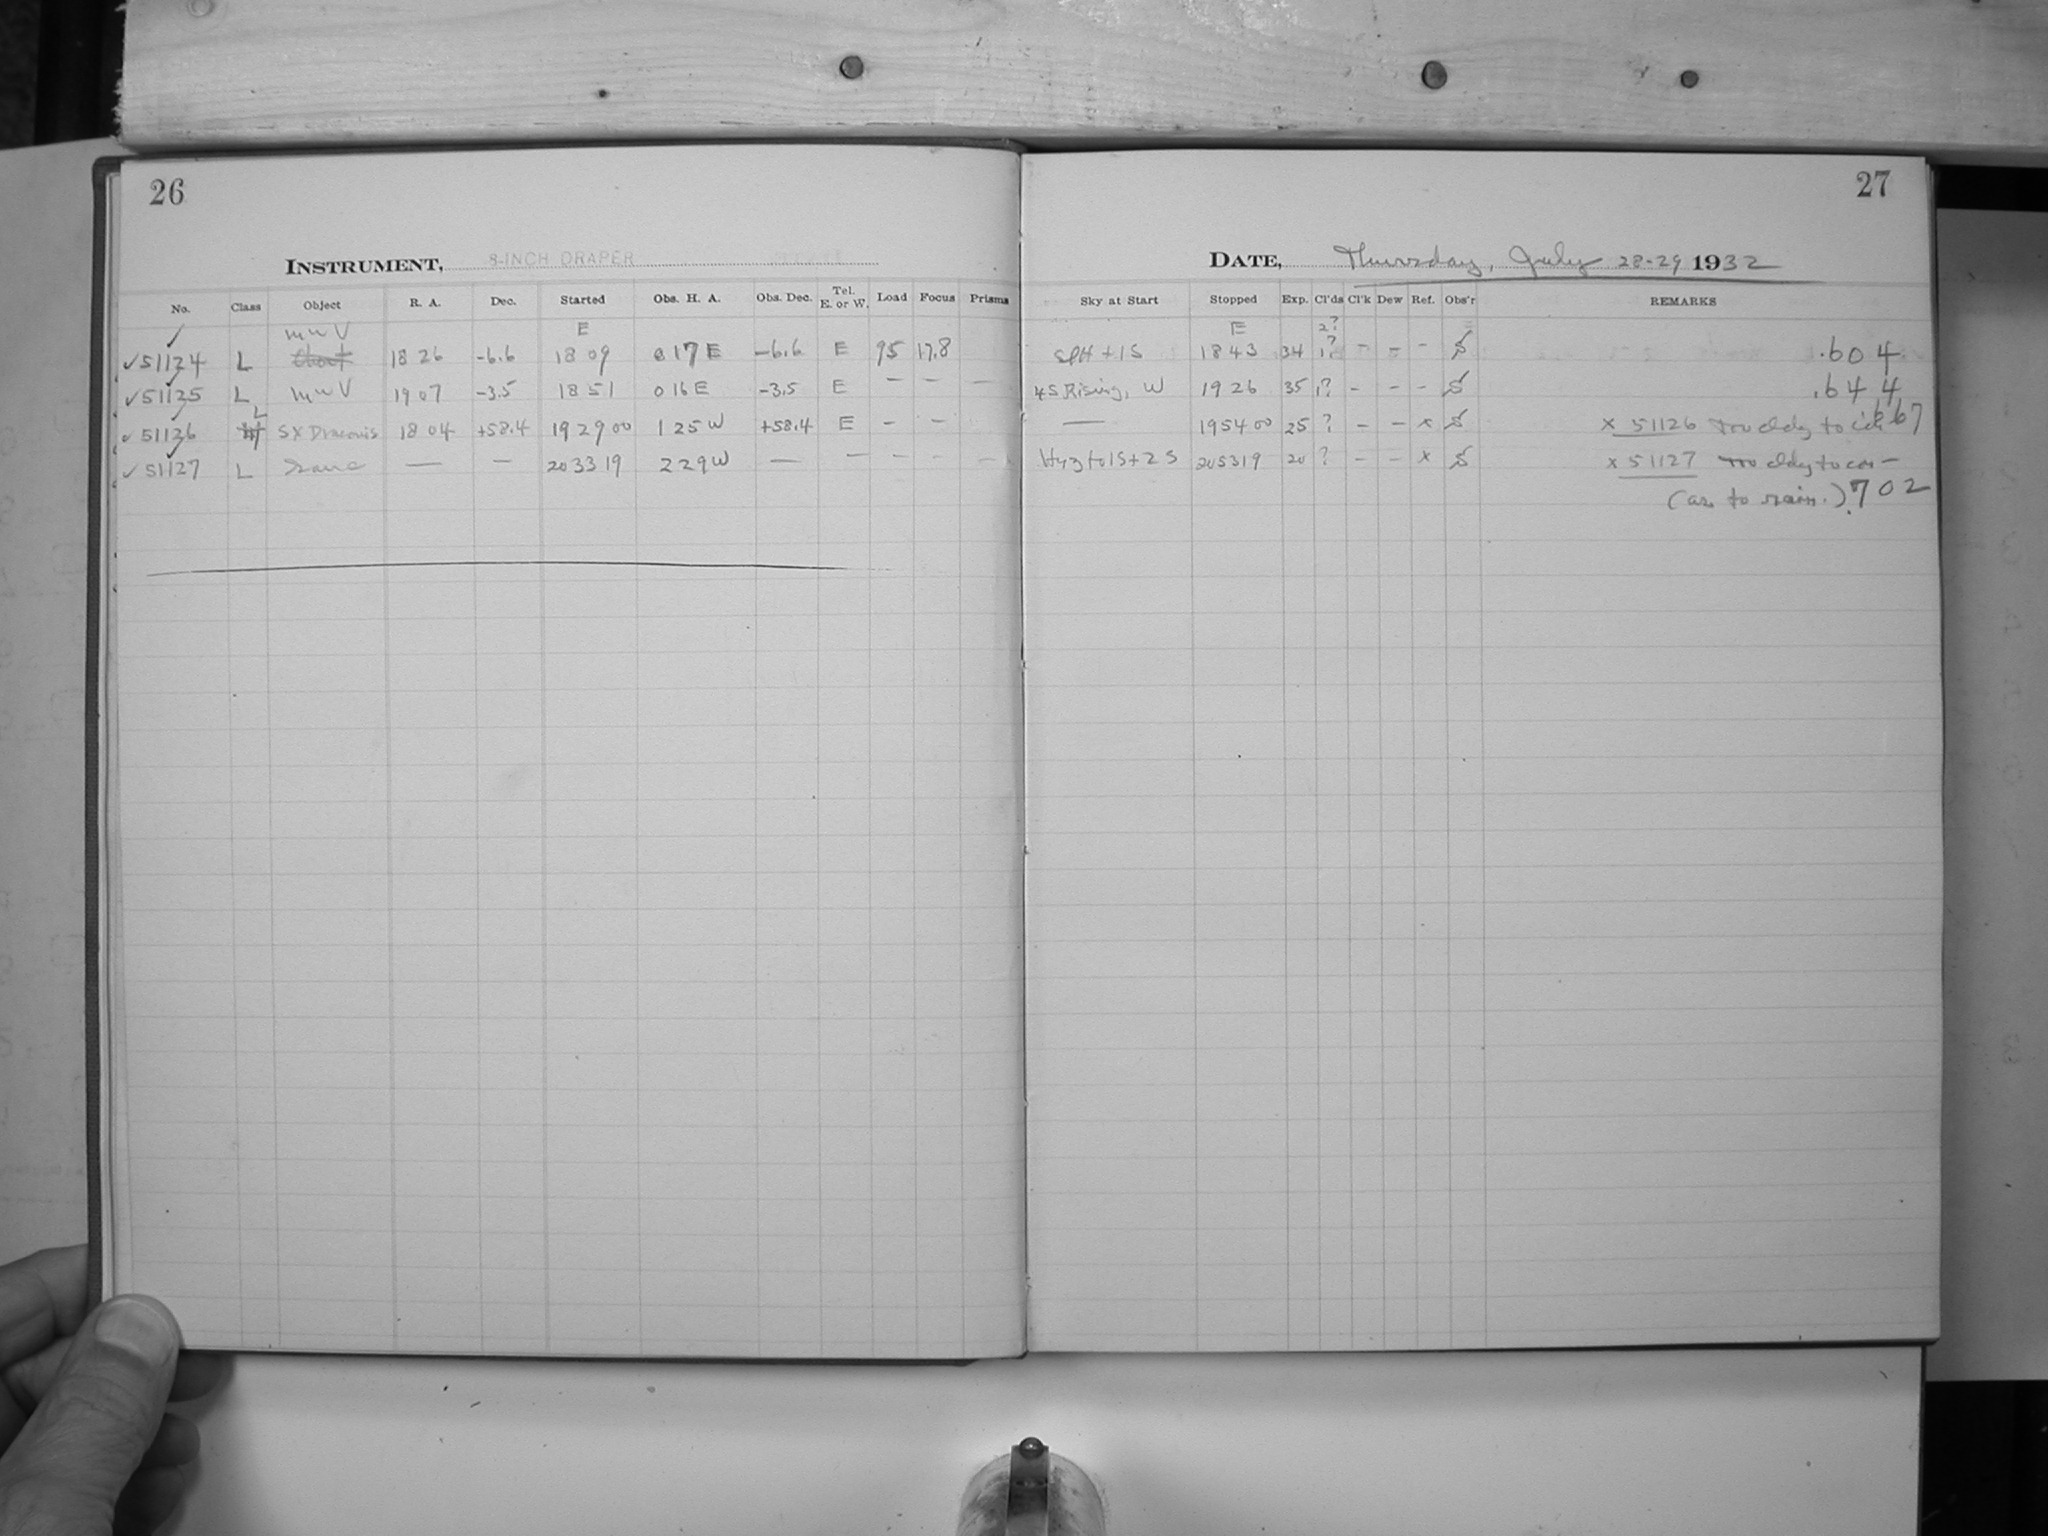 26
INSTRUMENT, 8-INCH DRAPER
No. Class Object R. A. Dec. Started Obs. H. A. Obs. Dec. Tel. E. or W. Load Focus Prisms
MWV E
51124 L 18 26 -6.6 18 09 0 17 E -6.6 E 95 17.8
51125 L MWV 19 07 -3.5 18 51 0 16 E -3.5 E — — —
L
51126 SX Draconis 18 04 +58.4 19 29 00 1 25 W +58.4 E — —
51127 L Same — — 20 33 19 2 29 W — — — — — —
27
DATE, Thursday, July 28-29 1932
Sky at Start Stopped Exp. Cl'ds Cl'k Dew Ref. Obs'r REMARKS
E 2?
+1S 18 43 34 1? - - - .604
4S Rising, W 19 26 35 1? - - - .644
— 19 54 00 25 ? - - x x 51126 Too cldy to .667
Hyz to 1S+2S 20 53 19 20 ? - - x x 51127 Too cldy to con-
(as to rain.) .702